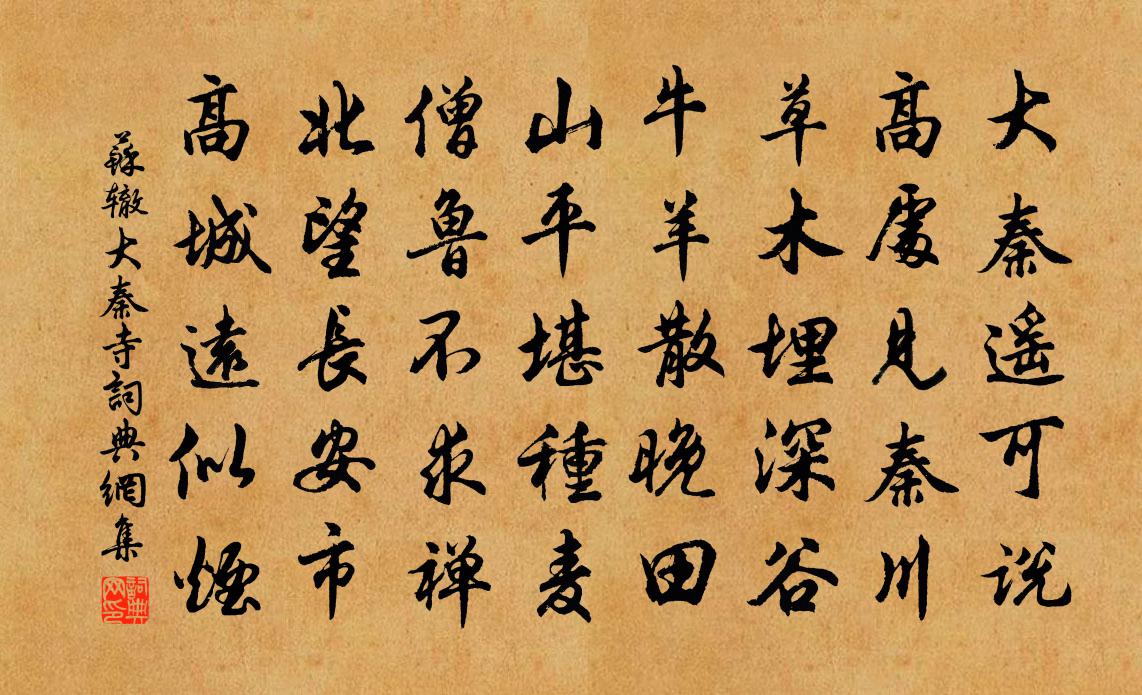 大秦遥可说
高處見秦川
草木埋深谷
牛羊散晚田
山平堪種麦
僧魯不求禅
北望長安市
高城遠似煙
蘇辙大秦寺詞典網集
詞典网印